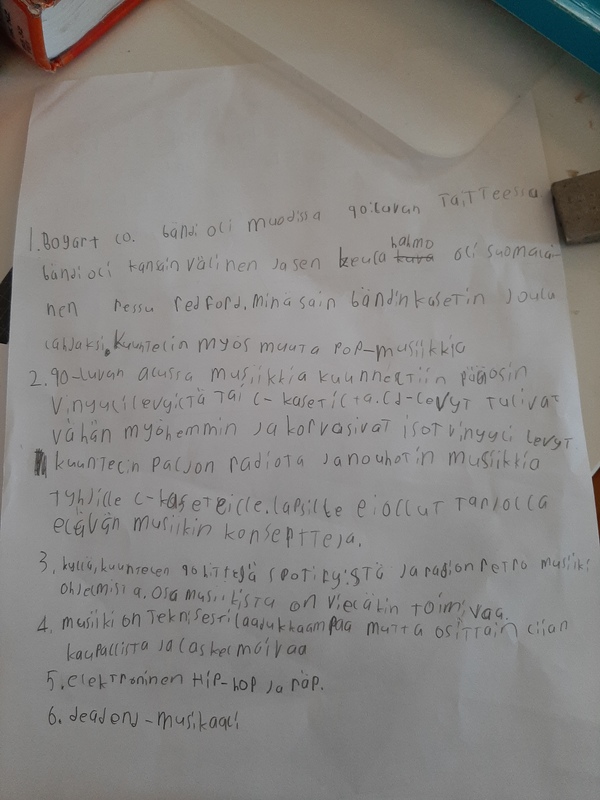 1. Bogart co. bändi oli muodissa 90-luvun Taitteessa
bändi oli kansainvälinen Ja sen keula hahmo oli suomalai-
nen Pessu redford. minä sain bändin kasetin Joulu
lahjaksi. Kuuntelin myös muuta PoP-musiikkia
2. 90-luvun alussa musiikkia kuunneltiin pääosin
Vinyylilevyiltä Tai C-kasetilta. Cd-levyt Tulivat
vähän myöhemmin Ja korvasivat isot vinyyli levyt.
kuuntelin Paljon radiota Ja nauhotin musiikkia
Tyhjille C-kaseteille. lapsille ei ollut Tarjolla
elävän musiikin konsertteja.
3. kyllä, kuuntelen 90 hittejä spotifystä Ja radion retro musiiki
ohjelmista. Osa musiikista on vieläkin Toimivaa.
4. musiiki on Teknisesti laadukkaampaa mutta osittain liian
kaupallista Ja laskelmoivaa
5. elektroninen HiP-hop Ja räp.
6. deadend-musikaali